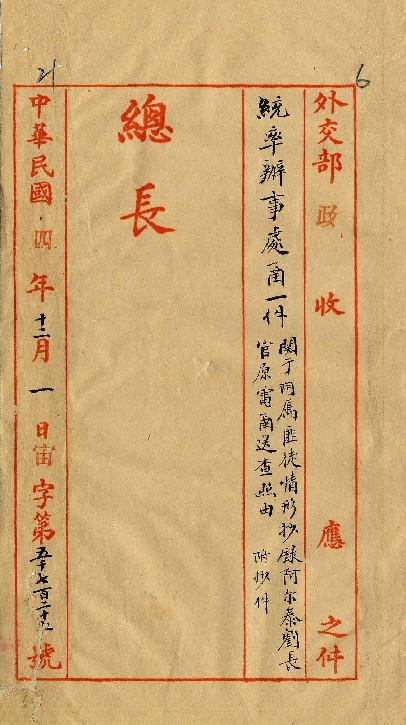 6
外交部 政 收 應 之件
統率辦事處函一件
關于阿屬匪徒情形抄錄阿尔泰劉長
官原電函送查照由 附抄件
總長
21
中華民國 四年十二月一日宙字第五千七百二十九號